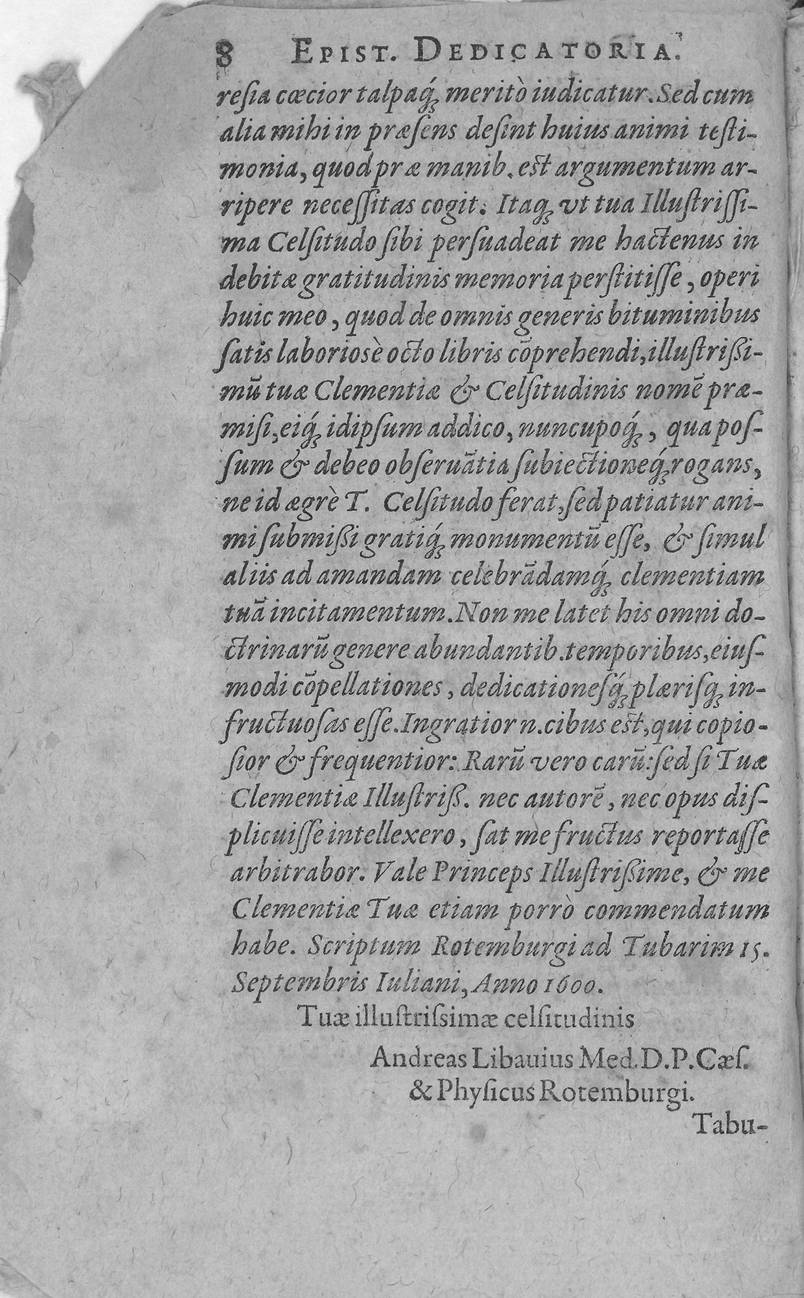 8 EPIST. DEDICATORIA.
reſia cæcior talpaq́ꝫ meritò iudicatur. Sed cum
alia mihi in præſens deſint huius animi teſti-
monia, quod præ manib. est argumentum ar-
ripere neceſſitas cogit. Itaqꝫ vt tua Illuſtriſſi-
ma Celſitudo ſibi perſuadeat me hactenus in
debitæ gratitudinis memoria perſtitiſſe, operi
huic meo, quod de omnis generis bituminibus
ſatis laboriosè octo libris cõprehendi, illuſtrißi-
mũ tuæ Clementiæ & Celſitudinis nomẽ præ-
miſi, eiq́ꝫ idipſum addico, nuncupoq́ꝫ, qua poſ-
ſum & debeo obſeruãtia ſubiectioneq́ꝫ, rogans,
ne id ægrè T. Celſitudo ferat, ſed patiatur ani-
mi ſubmißi gratiq́ꝫ monumentũ eſſe, & ſimul
aliis ad amandam celebrãdamq́ꝫ clementiam
tuã incitamentum. Non me latet his omni do-
ctrinarũ genere abundantib. temporibus, eiuſ-
modi cõpellationes, dedicationeſq́ꝫ plæriſqꝫ in-
fructuoſas eſſe. Ingratior n. cibus est, qui copio-
ſior & frequentior: Rarũ vero carũ: ſed ſi Tuæ
Clementiæ Illuſtriß. nec autorẽ, nec opus diſ-
plicuiſſe intellexero, ſat me fructus reportaſſe
arbitrabor. Vale Princeps Illuſtrißime, & me
Clementiæ Tuæ etiam porrò commendatum
habe. Scriptum Rotemburgi ad Tubarim 15.
Septembris Iuliani, Anno 1600.
Tuæ illuſtriſsimæ celſitudinis
Andreas Libauius Med. D. P. Cæſ.
& Phyſicus Rotemburgi.
Tabu-